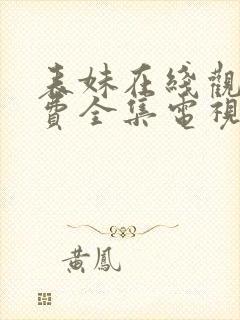 表妹在綫觀
費全集電視
黃鳳